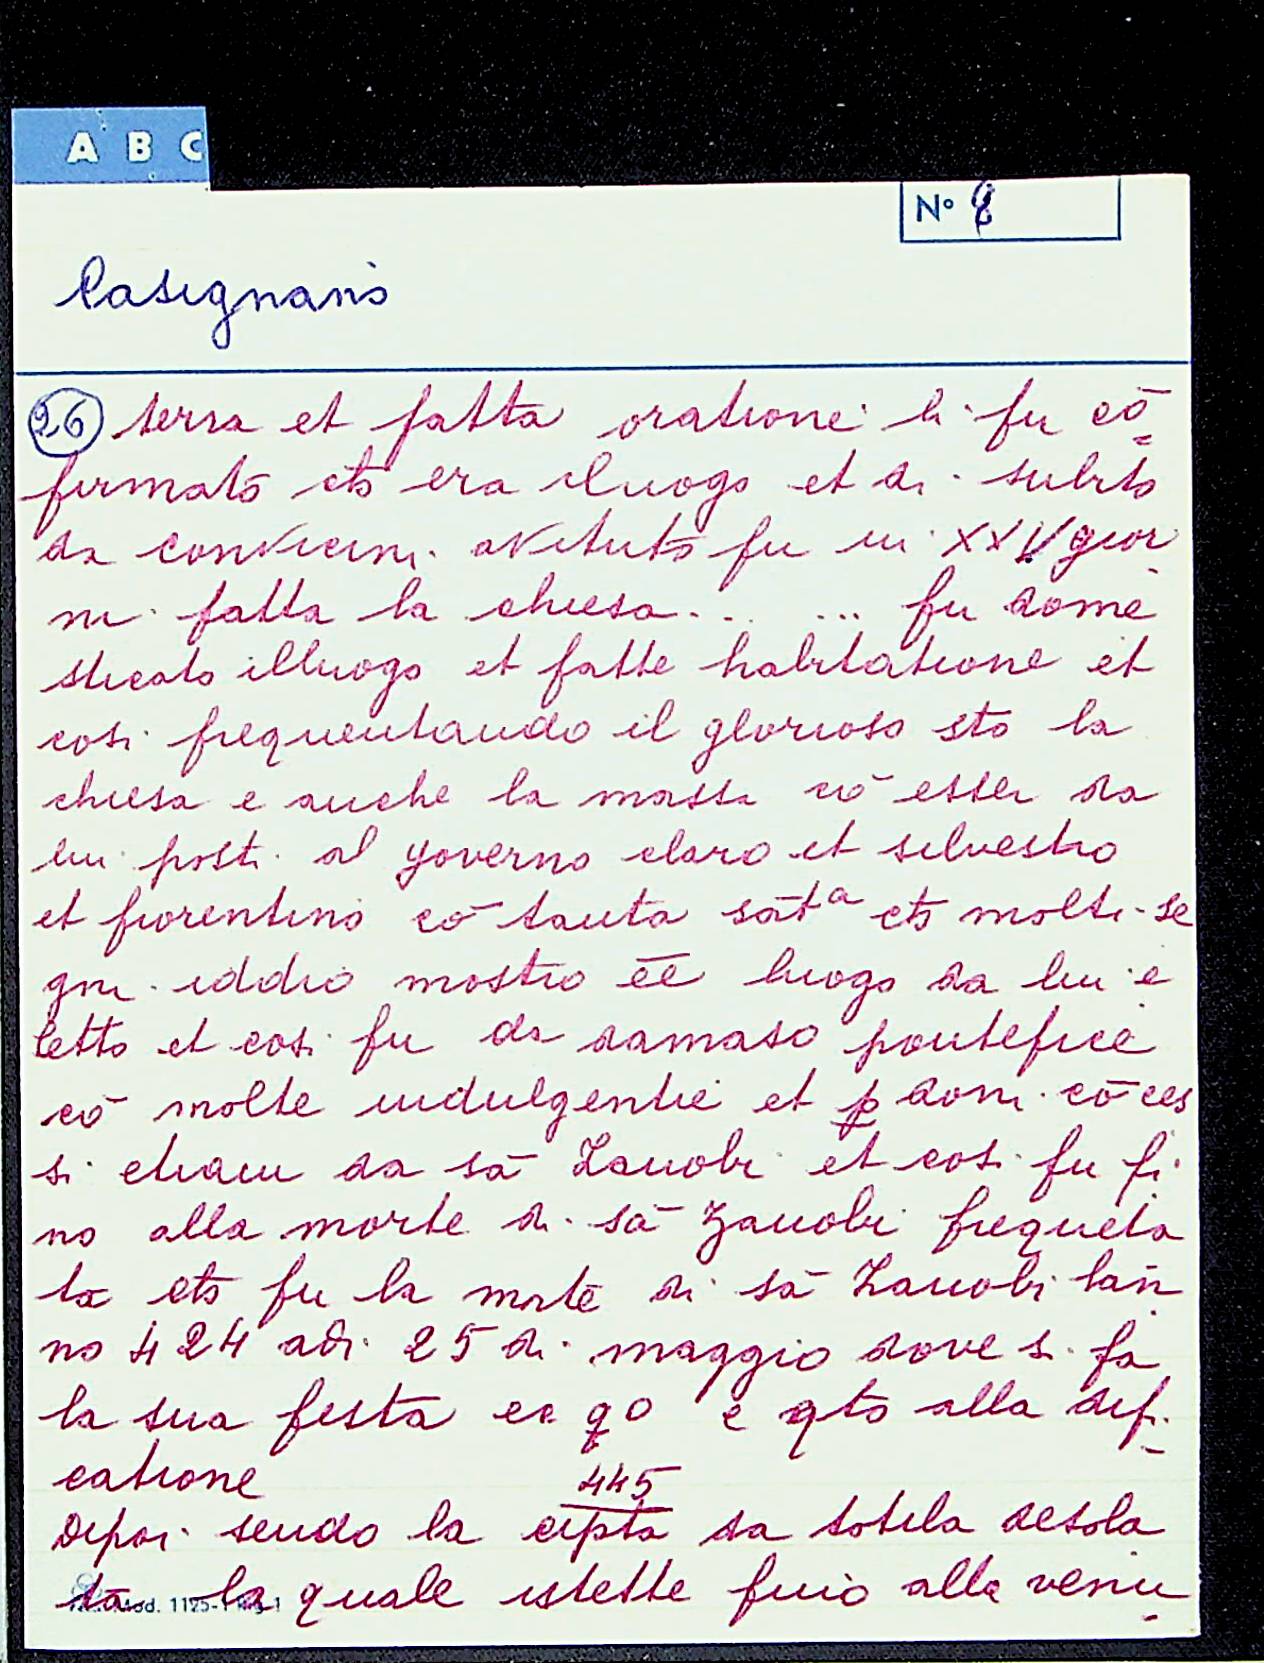 A B C
N° 8
Casignano
26 terra et fatta oratione li fu cō=
firmato cto era illuogo et di subito
da convicini avituto fu in XXV gior
ni fatta la chiesa... ... fu dome
sticato illuogo et fatte habitatione et
cosi frequentando il glorioso sto la
chiesa e anche la massa cō esser da
lui posti al governo claro et silvestro
et fiorentino cō tanta sāta cto molti se
gni iddio mostro ēē luogo da lui e
letto et cosi fu da damaso pontefice
cō molte indulgentie et p doni cō ces
si etiam da sā Zanobi et cosi fu fi
no alla morte di sā Zanobi frequeta
ta cto fu la morte di sā Zanobi lān
no 424 adi 25 di maggio dove si fa
la sua festa ee qo e qto alla difi-
catione
445
Dipoi sendo la cipta da totila desola
ta la quale istette fino alla venu-
Mod. 1125-1